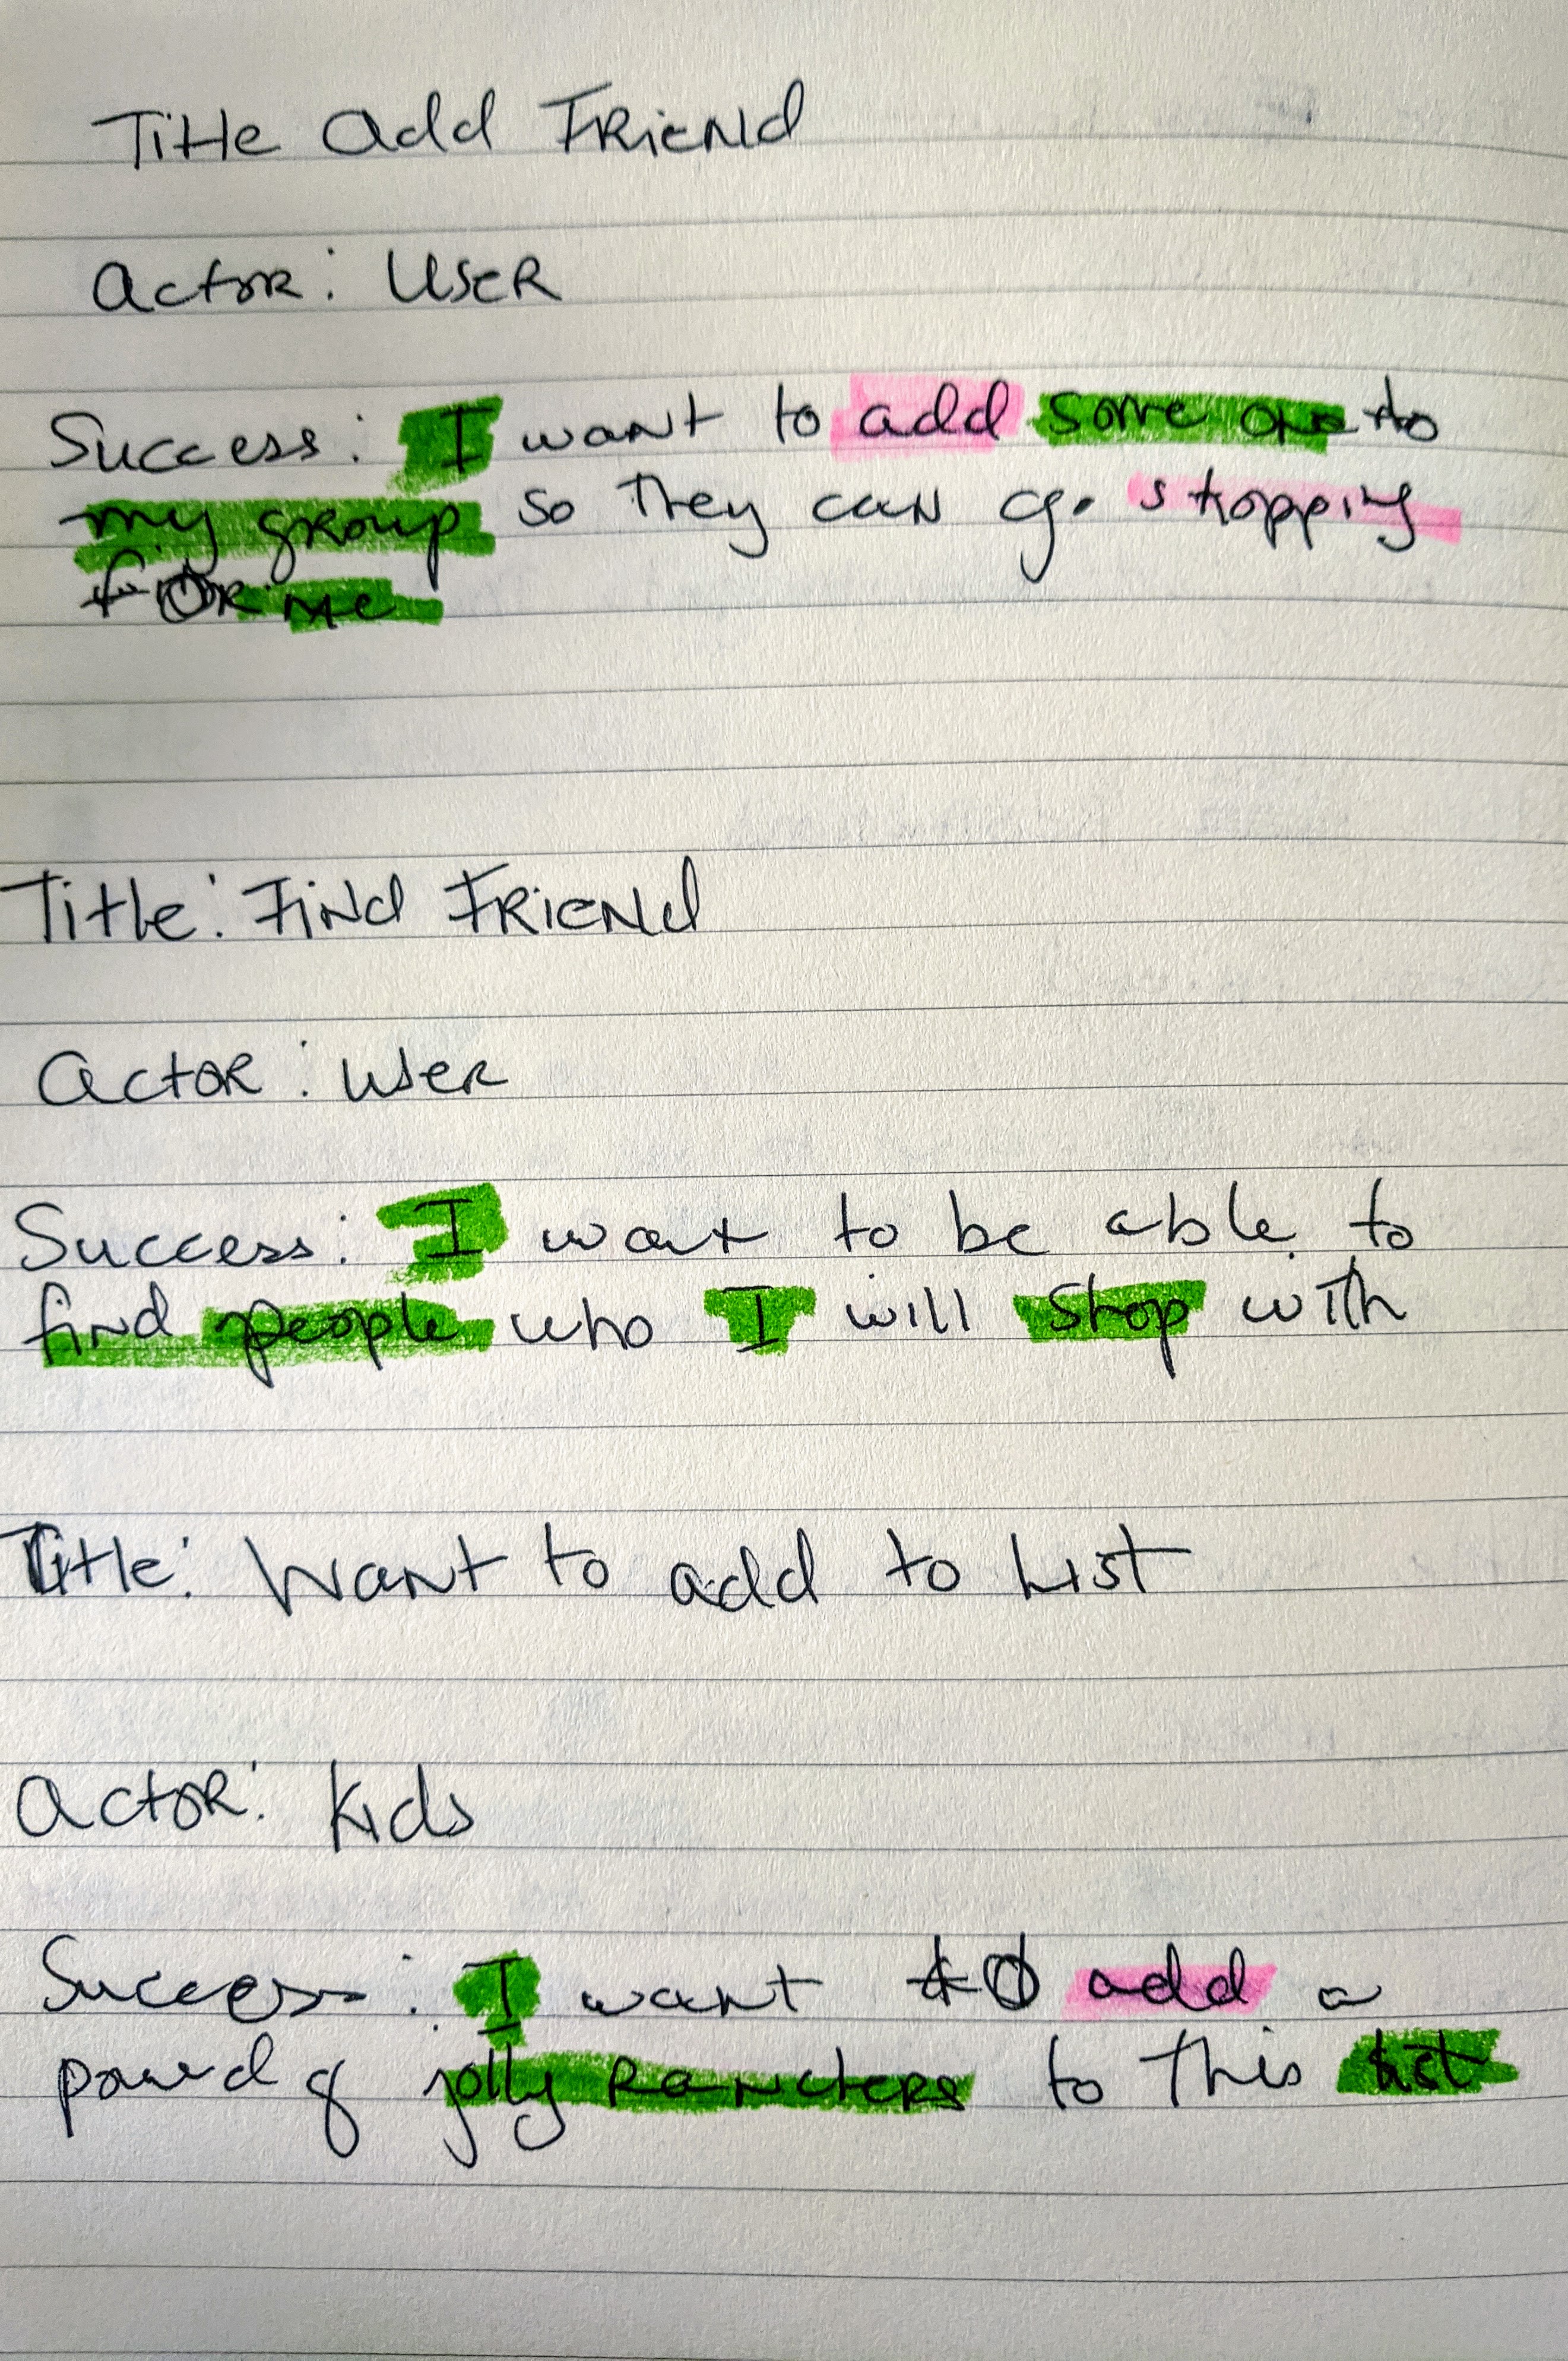 Title add Friend
actor: User
Success: I want to add some one to
my group so they can go shopping
for me
Title: Find Friend
actor: user
Success: I want to be able to
find people who I will shop with
Title: Want to add to List
actor: Kids
Success: I want to add a
pound of jolly Ranchers to this list